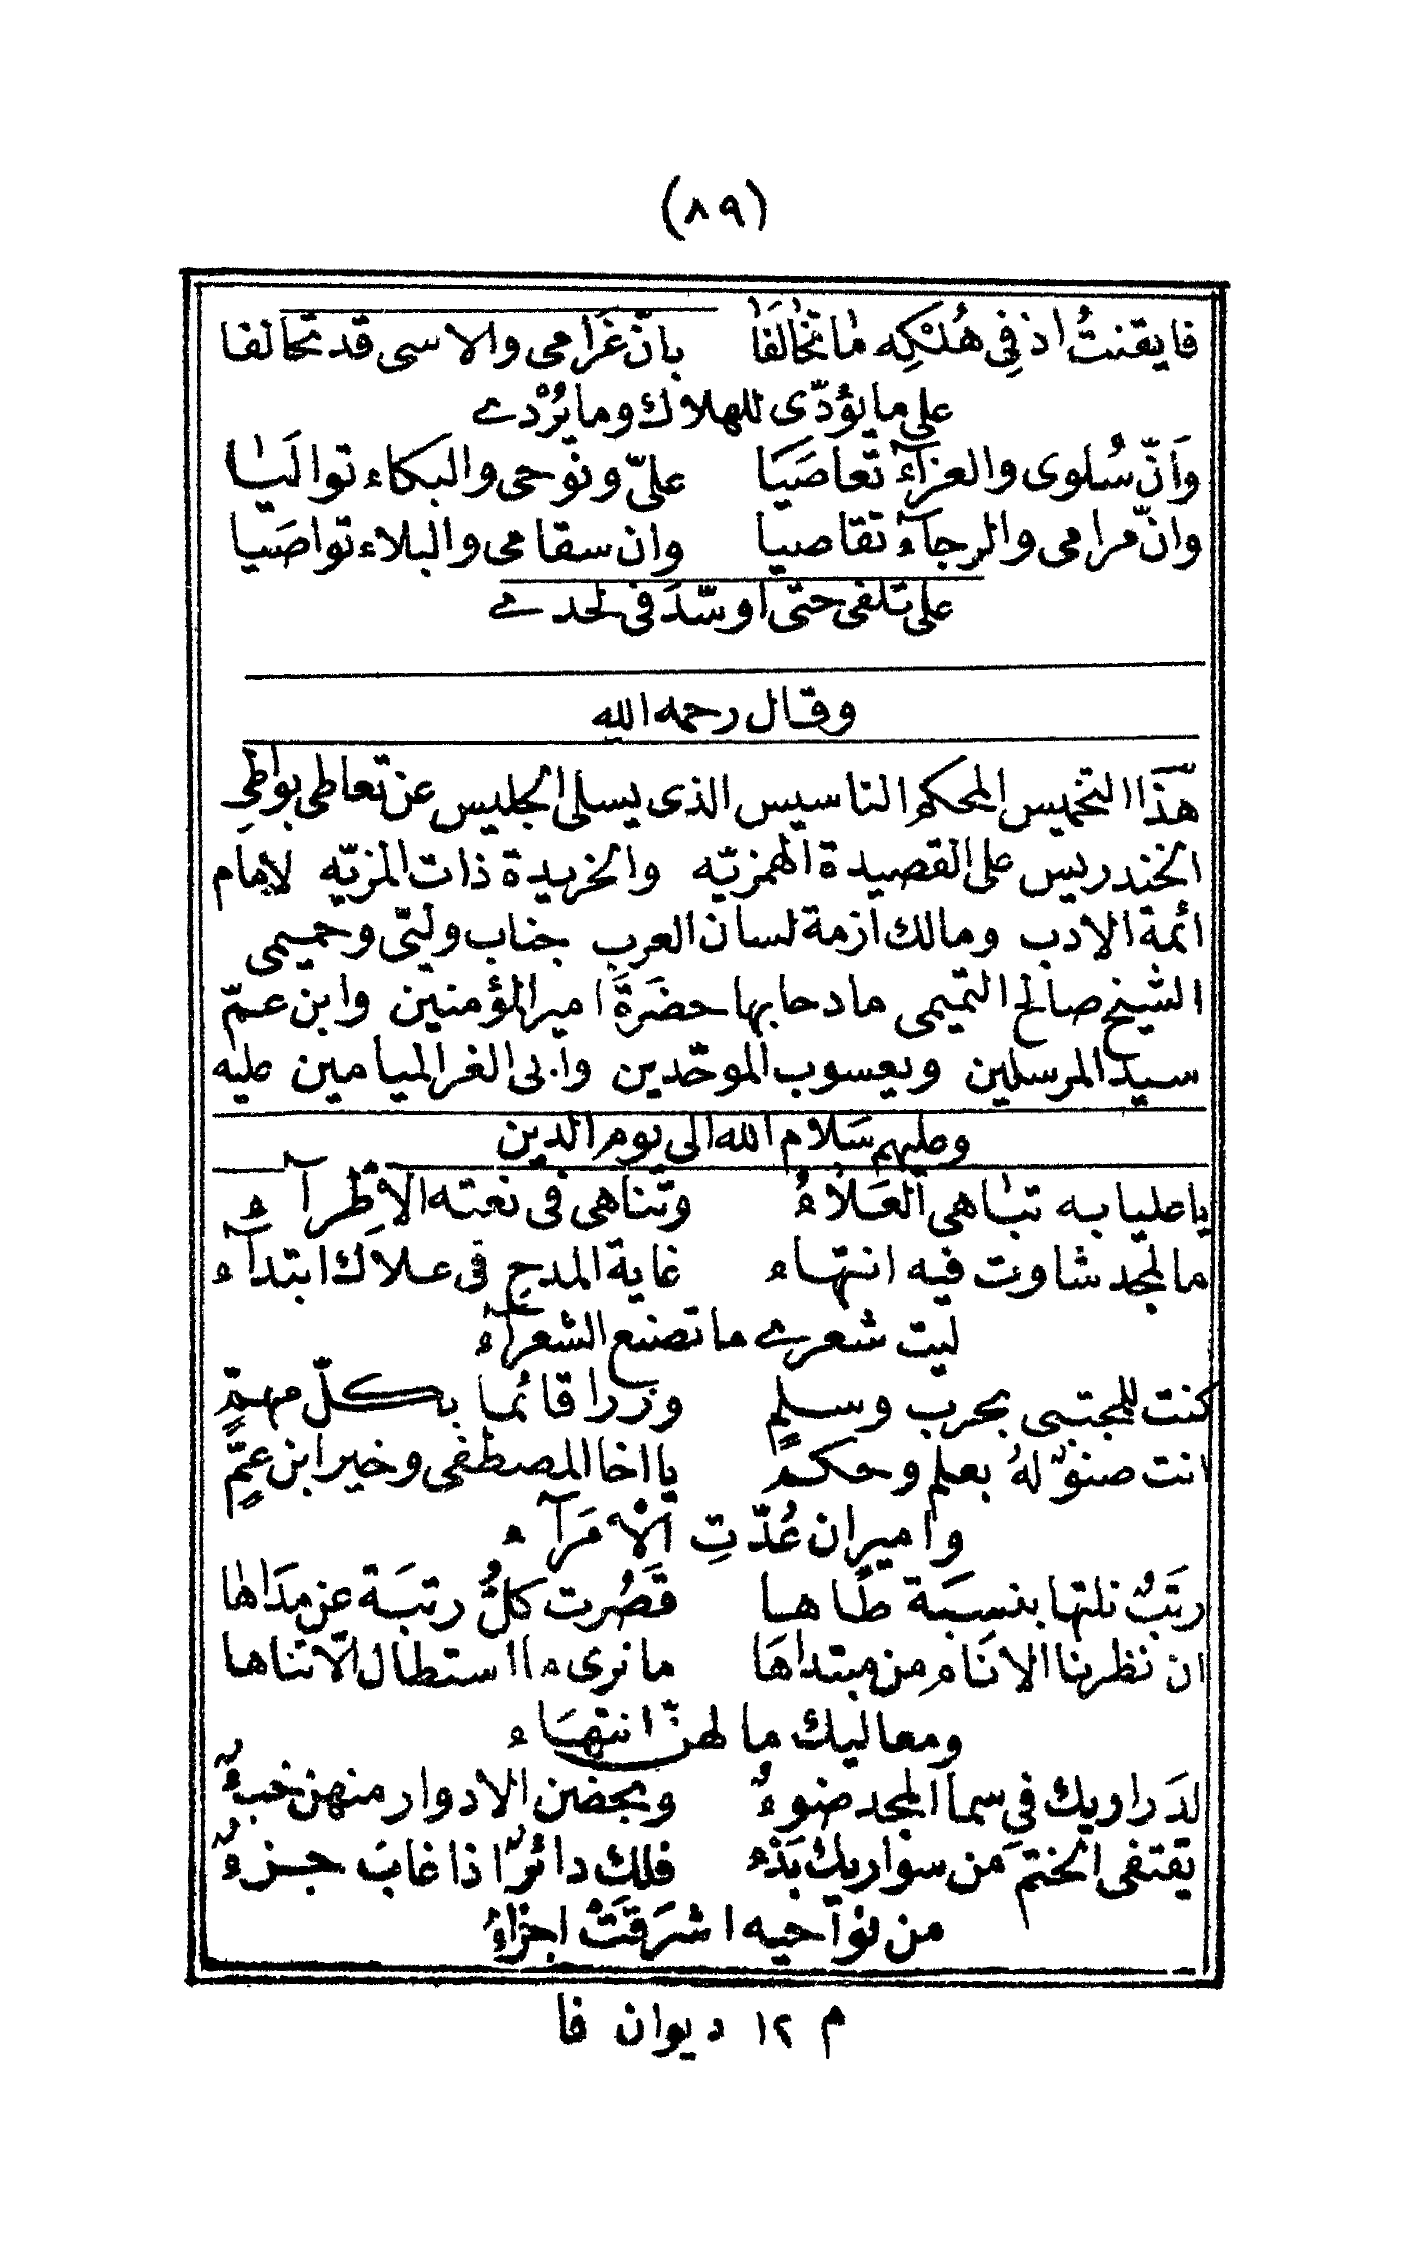 (٨٩)
فايقنتُ اذ فِى هُلْكِه ما تخَالَفَا بانّ غَرَامى والاسى قد تحالفا
على ما يؤدّى للهلاك وما يُرْدى
وَانّ سُلوى والعزآءَ تَعاصَيَا علىّ ونَوحى والبكاء توالَيا
وانّ مرامى والرجآء تقاصيا وان سقامى والبلاء تواصَيا
على تلفى حتى اوسَّدَ فى لحدى
وقال رحمه الله
هٰذَا التخميس المحكم التاسيس الذى يسلى الجليس عن تعاطى بواطى
الخندريس على القصيدة الهمزيّه والخريدة ذات المزيّه لامام
ائمة الادب ومالك ازمة لسان العرب جناب وليّى وحميمى
الشيخ صالح التميمى مادحا بها حضَرةَ امير المؤمنين وابن عمّ
سيد المرسلين ويعسوب الموحّدين وابى الغر الميامين عليه
وعليهم سَلام الله الى يوم الدين
يا عليا به تباهى العَلاءُ وتناهى فى نعته الاِطْرآء
ما لمجد شاوت فيه انتهاء غاية المدح فى علاك ابتدآء
ليت شعرى ما تصنع الشعرآء
كنت للمجتبى بحرب وسلمٍ وزرا قائما بكلّ مهمٍّ
انت صنوٌ لهُ بعلم وحكم يا اخا المصطفى وخير ابن عمٍّ
وامير ان عُدّتِ الاُمَرآء
رتَبٌ نلتها بنسبَة طَاها قَصُرت كلُّ رتبَة عن مدَاها
ان نظرنا الانَام من مبتداهَا ما نرى ماا ستطال الّا تناها
ومعاليك ما لهنّ انتهَاء
لدَراريك فِى سما المجد ضوءٌ وبحضن الادوار منهن خبءٌ
يقتفى الختمَ من سواريك بَذْء فلك دائرٌ اذا غابَ جزءٌ
من نوآحيه اشرَقَتْ اجزاءُ
م ١٢ ديوان فا